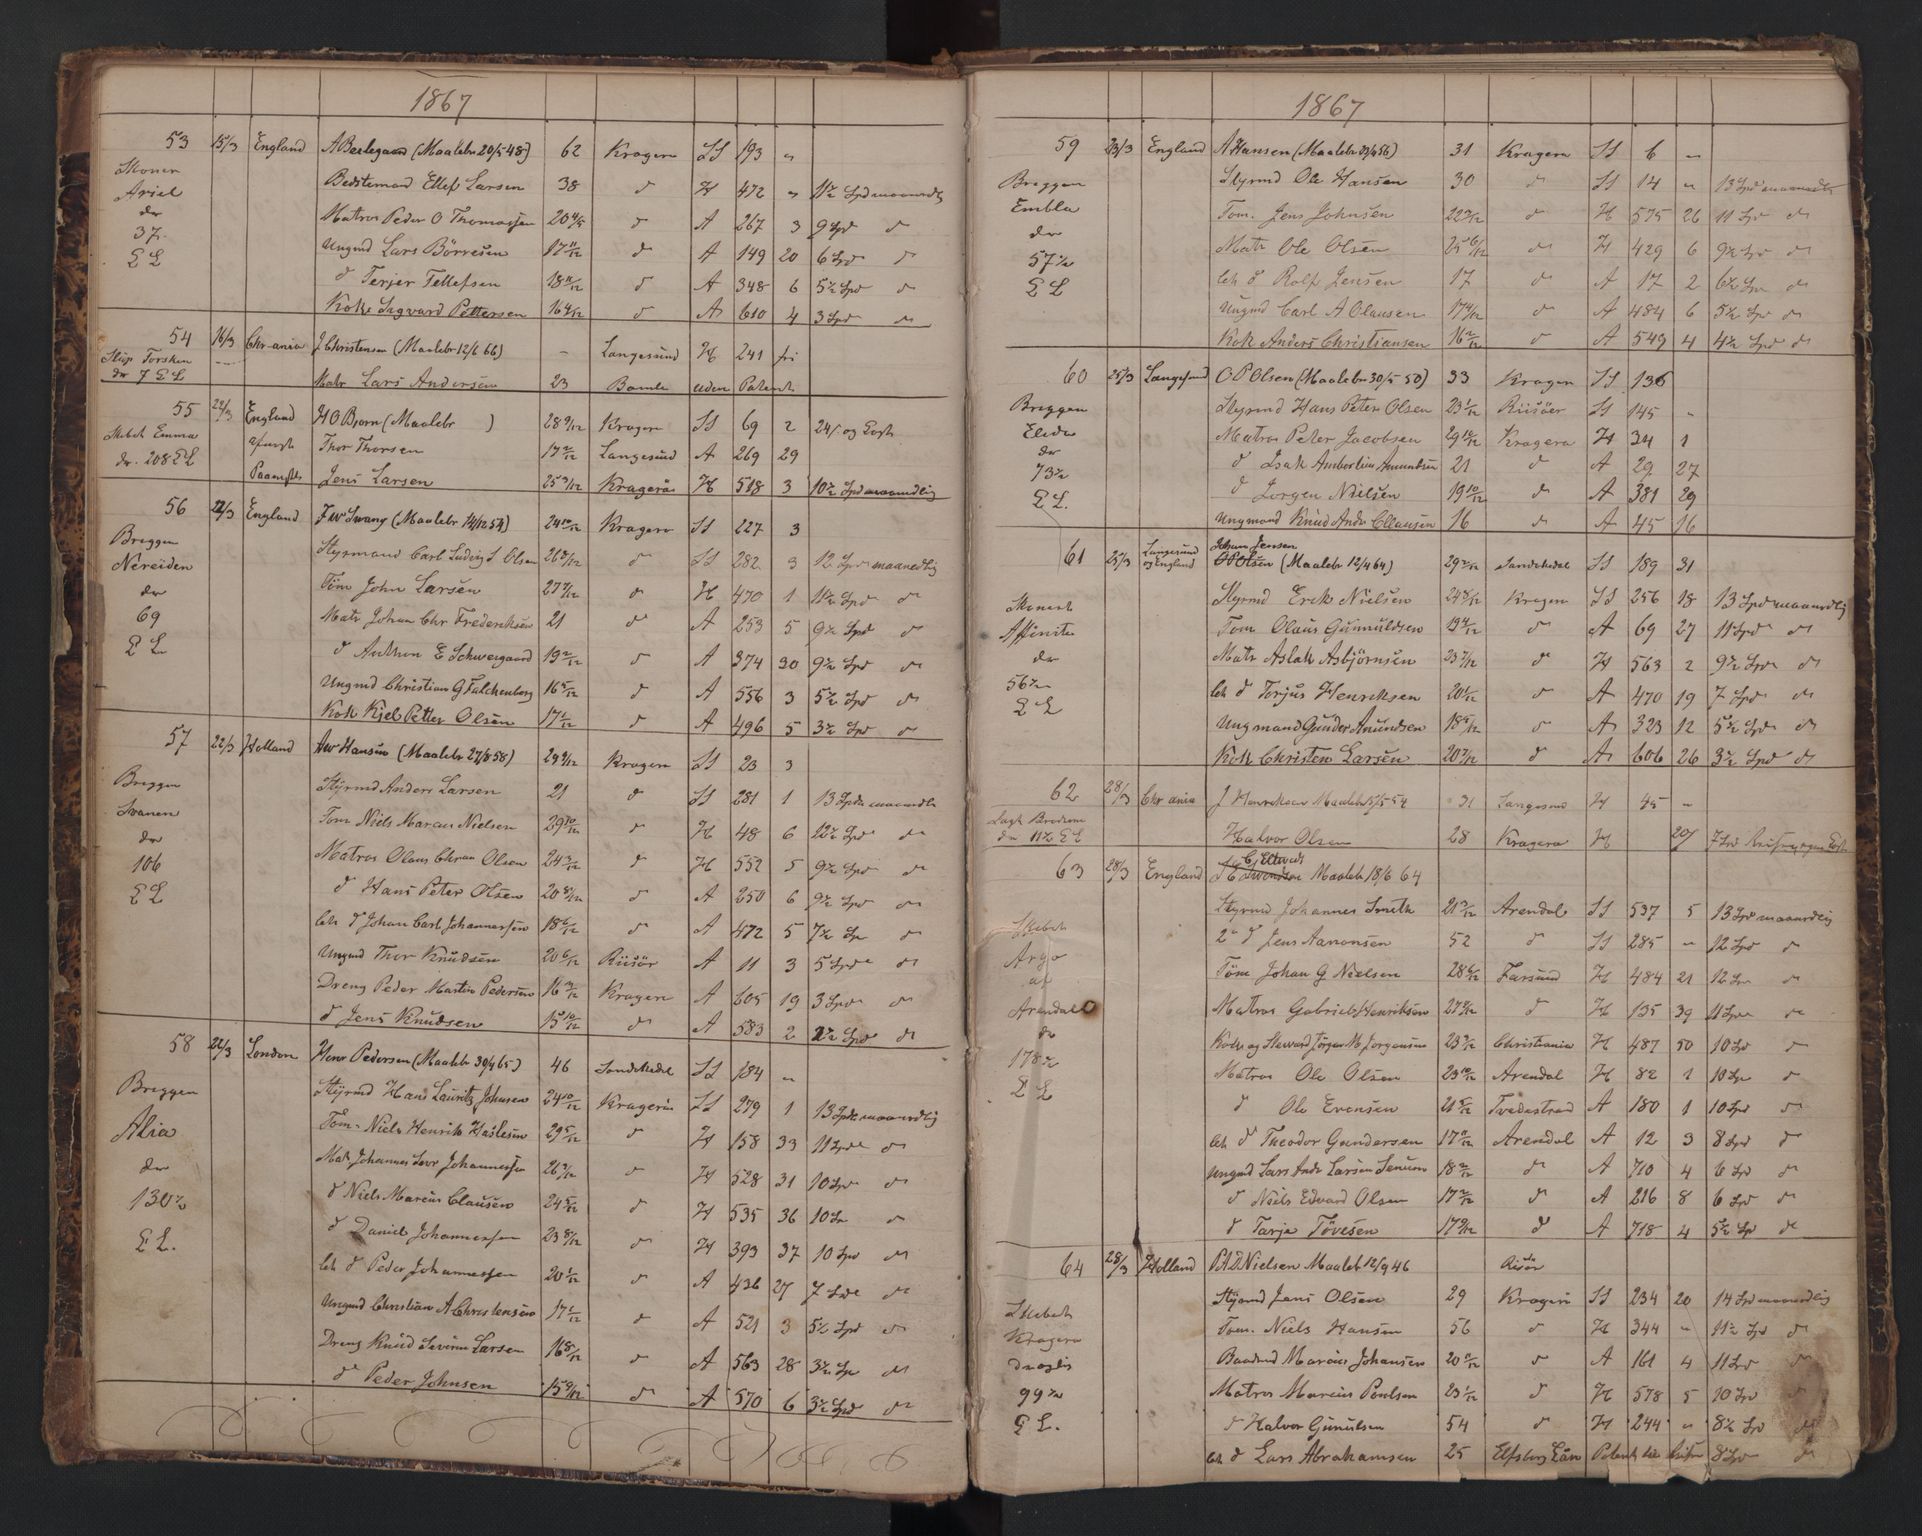 1867
53 15/3 England A Beslegaard (Maalebr 20/5 48) 62 Kragerø SS 193 "
Bedstemand Ellef Larsen 38 d H 472 " 11½ Spd maanedl
Ariel
Matros Peder O Thomassen 20 4/12 d A 267 3 9 Spd d
dr
37
Ungmd Lars Börresen 17 11/12 d A 149 20 6 Spd d
EL
d Terjer Tellefsen 18 11/12 d A 348 6 5½ Spd d
Kok Sigvard Pettersen 16 4/12 d A 610 4 3 Spd d
54 16/3 Chr-ania J Christensen (Maalebr 12/6 66) - Langesund H 241 fri
Slup Torsken
dr 7 EL
Matr Lars Andersen 23 Bamle uden Patent
55 22/3 England H O Bjørn (Maalebr ) 28 9/12 Kragerø SS 69 2 24/. og Kost
Skebet Emma
Thor Thorsen 17 2/12 Langesund A 269 29
dr. 208 EL
Jens Larsen 25 3/12 Kragerö H 518 3 10½ Spd maanedlig
56 22/3 England F W Svang (Maalebr 14/12 54) 24 10/12 Kragerø SS 227 3
Briggen
Styrmand Carl Ludvig S Olsen 26 8/12 d SS 282 3 12 Spd maanedlig
Nereiden
Töm John Larsen 27 7/12 d H 470 1 11½ Spd d
dr
69
Matr Johan Chr Frederiksen 21 d A 253 5 9½ Spd d
EL
d Anthon E Schweigaard 19 2/12 d A 374 30 9½ Spd d
Ungmd Christian G Falchenberg 16 5/12 d A 556 3 5½ Spd d
Kok Kjel Petter Olsen 17 1/12 d A 496 5 3½ Spd d
57 22/3 Holland A W Hansen (Maalebr 27/8 58) 29 9/12 Kragerø SS 23 3
Briggen
Styrmd Anders Larsen 21 d SS 281 1 13 Spd maanedl
Svanen
Töm Niels Marcus Nielsen 29 10/12 d H 48 6 12½ Spd d
dr
106
Matros Olaus Chrian Olsen 24 3/12 d H 552 5 9½ Spd d
EL
d Hans Peter Olsen 20 8/12 d A 250 6 9½ Spd d
Let d Johan Carl Johannessen 18 6/12 d A 472 5 7½ Sp d
Ungmd Thor Knudsen 20 6/12 Riisör A 11 3 5 Spd d
Dreng Peder Martin Pedersen 16 Kragerø A 605 19 3 Spd d
d Jens Knudsen 15 10/12 d A 583 2 2½ Spd d
58 22/3 London Henr Pedersen (Maalebr 30/4 65) 46 Sandekedal SS 184 "
Briggen
Styrmd Hans Lauritz Johnsen 24 10/12 Kragerö SS 279 1 13 Spd maanedlig
Alia
Tom. Niels Henrik Haslesen 29 5/12 d H 158 33 11 Spd d
dr
Mat Johannes Johannessen 26 3/12 d H 528 31 10 Spd d
130½
d Niels Marcus Clausen 24 5/12 d H 535 36 10 Sp d
EL.
d Daniel Johannessen 23 8/12 d H 393 37 10 Spd d
Let d Peder Johannessen 20 1/12 d A 436 27 7 Spd d
Ungmd Christian A Christensen 17 1/12 d A 521 3 5½ Spd d
Dreng Knud Severin Larsen 16 8/12 d A 563 28 3½ Sp d
d Peder Johnsen 15 9/12 d A 570 6 3½ Spd d
1867
59 23/3 England A Hansen (Maalebr 456) 31 Kragerø SS 6 "
Briggen
Styrmd Ole Hansen 30 d SS 14 " 13 Spd maanedl
Embla
Tom. Jens Johnsen 22 7/12 d H 575 26 11 Spd d
dr
57½
Matr Ole Olsen 25 6/12 d H 429 6 9½ Spd d
EL
Let d Rolf Jensen 17 d A 17 2 6½ Sp d
Ungmd Carl A Olausen 17 4/12 d A 484 6 5½ Spd d
Kok Anders Christiansen 16 2/12 d A 549 4 4½ Spd d
60 25/3 Langesund O P Olsen (Maalebr 30/5 50) 33 Kragerø SS 136
Briggen
Styrmd Hans Peter Olsen 23 1/12 Riisöer SS 145 "
Matros Peter Jacobsen 29 10/12 Kragerø H 34 1
dr
73½
d Isak Ambortius Amundsen 21 d A 29 27
EL.
d Jorgen Nielsen 19 10/12 d A 381 29
Ungmand Knud Andr Ellausen 16 d A 45 16
61 25/3 Langesund og England Johan Jensen
O P Olsen (Maalebr 12/4 64) 29 2/12 Sandekedal SS 189 31
Styrmd Erik Nielsen 24 8/12 Kragerø SS 256 18 13 Spd maanedlig
Affinite
Tom Olaus Gunnuldsen 19 4/12 d A 69 27 11 Spd d
dr
56½
Matr Aslak Asbjörnsen 23 7/12 d H 563 2 9½ Spd d
EL
Let d Torjus Henriksen 20 1/12 d A 470 19 7 Spd d
Ungmand Gunder Amundsen 18 9/12 d A 323 12 5½ Spd d
Kok Christen Larsen 20 7/12 d A 606 26 3½ Spd d
62 28/3 Chr ania J Henriksen Maalebr 5/5 54 31 Langesund H 45 "
dr 11½ EL
Halvor Olsen 28 Kragerø H 29 7 Spd
63 28/3 England
Svendsen Maalebr 18/6 64
Skebet
Styrmd Johannes Smith 21 9/12 Arendal SS 537 5 13 Spd maanedlig
Argo
2d d Jens Aanonsen 52 d SS 285 " 12 Spd d
af
Arendal
Töm Johan G Nielsen 28 6/12 Farsund H 484 21 12 Sp d
dr
178½
Matros Gabriel Henriksen 27 9/12 d H 135 39 11 Sp d
EL
Kok og Steward Jörgen M Jorgensen 23 3/12 Christiania H 487 50 10 Spd d
Matros Ole Olsen 23 10/12 Arendal H 82 1 10 Sp d
d Ole Evensen 21 5/12 Tvedestrand A 180 1 10 Spd d
Let d Theodor Gundersen 17 11/12 Arendal A 12 3 8 Spd d
Ungmd Lars Andr Larsen Senum 18 2/12 d A 710 4 6 Spd d
d Niels Edvard Olsen 17 2/12 d A 216 8 6 Spd d
d Tarje Tövesen 17 9/12 d A 718 4 5½ Spd d
64 28/3 Holland P A D Nielsen Maalebr 12/9 46 Risör
Skebet
Styrmd Jens Olsen 29 Kragerö SS 234 20 14 Spd maanedlig
Kragerø
Tom. Niels Hansen 56 d H 344 " 11½ Spd d
drægtig
Baadsmd Marcus Johansen 20 11/12 d A 161 4 11 Spd d
99½
Matros Marcus Poulsen 23 1/12 d H 578 5 10 Spd d
EL.
d Halvor Gunulsen 54 d H 244 " 8½ Spd d
Let d Lars Abrahamsen 25 Elfsborg Län 8 Spd d